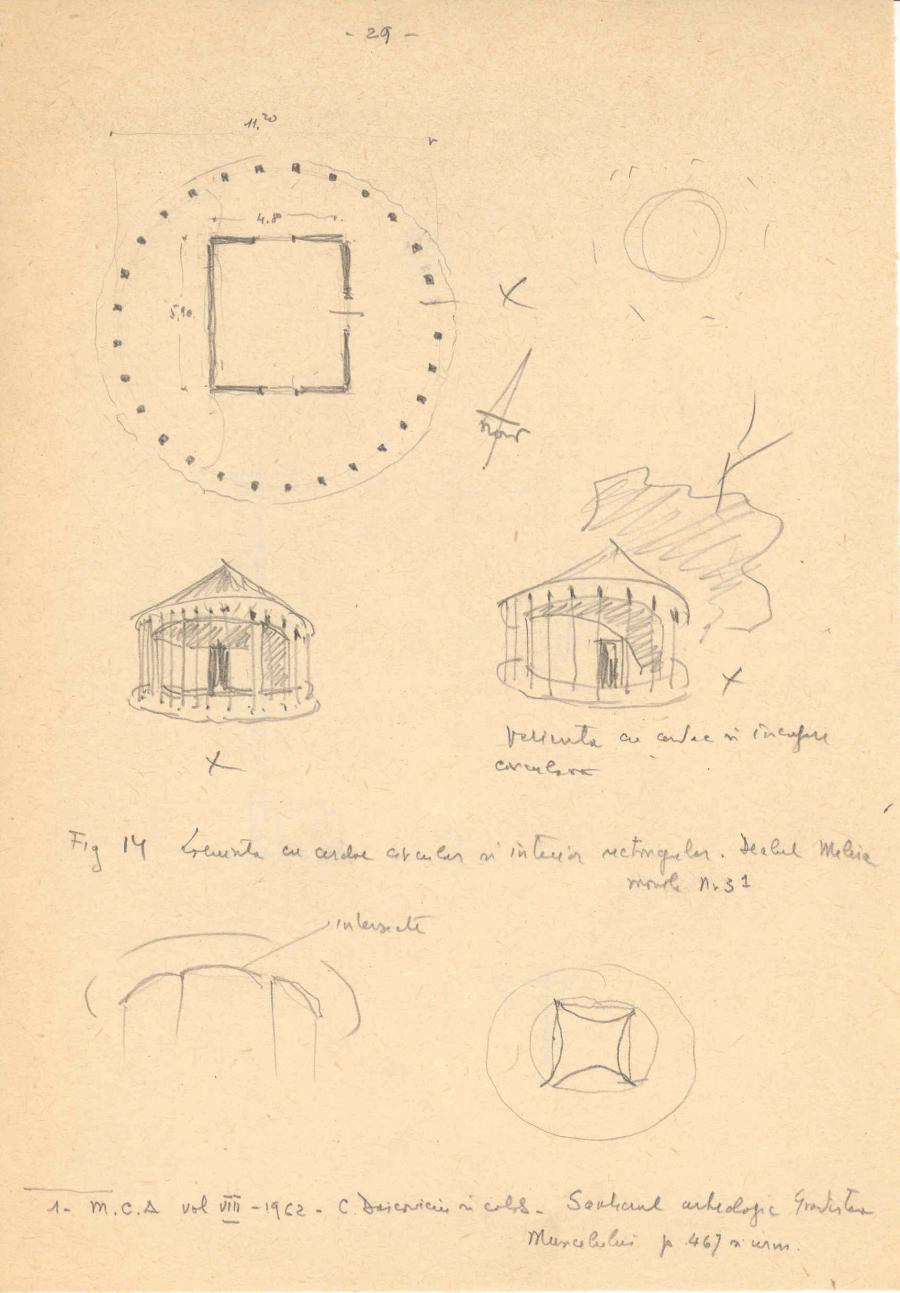 - 29 -
11,20
4.8
5,90
X
nord
X
X
Varianta cu cerdac si incapere
circulara
Fig 14 Locuinta cu cerdac circular si interior rectangular. Dealul Meleia
movila Nr 3 1
intersectii
1- M.C.A vol VIII - 1962 - C. Daicoviciu si colab - Santierul arheologic Gradistea
Muncelului p 467 si urm.